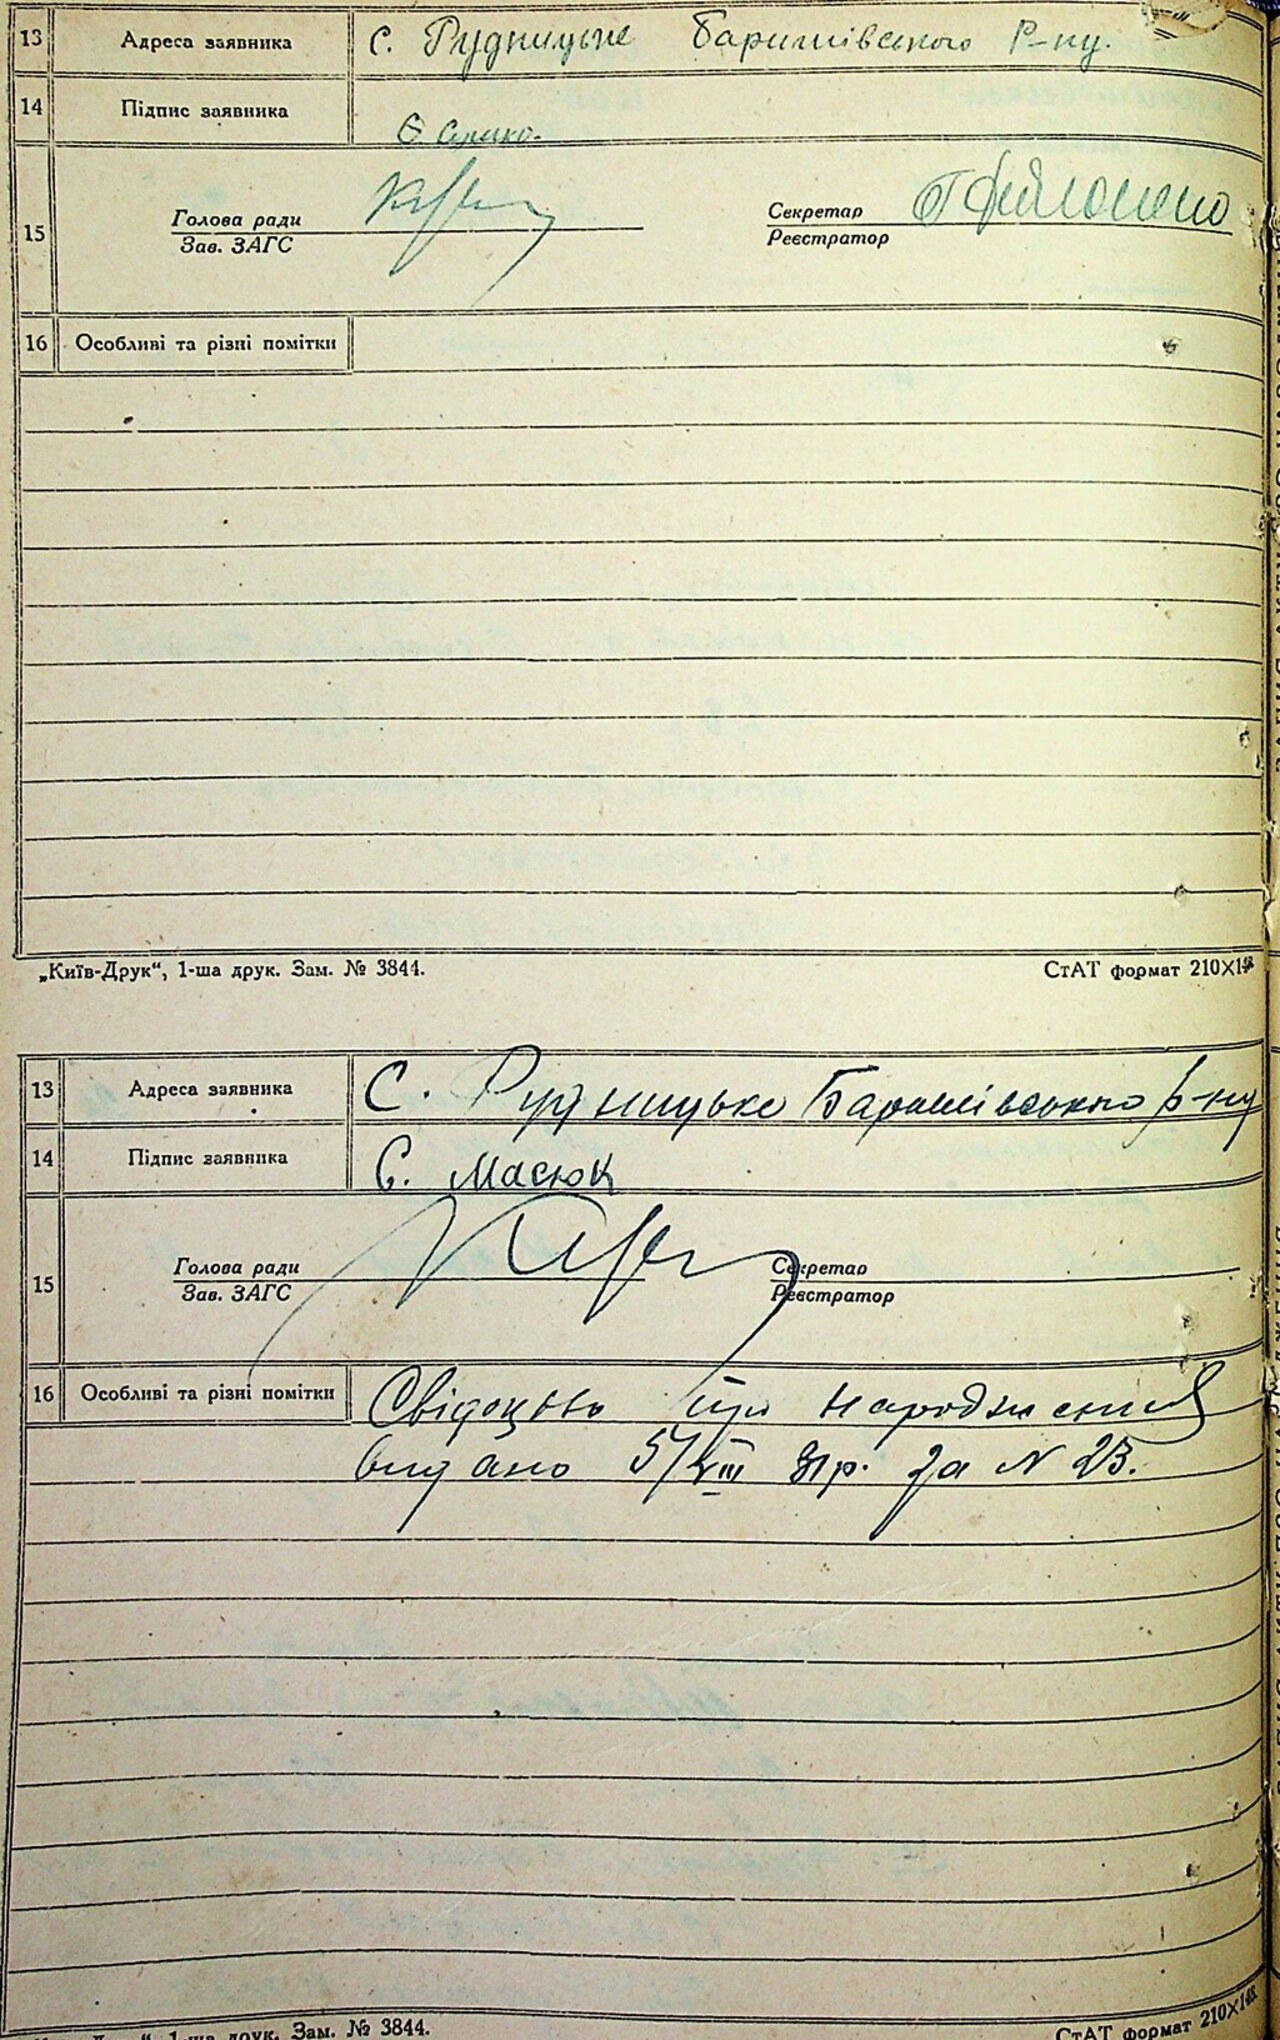 13 Адреса заявника с. Рудницьке Баришівського Р-ну.
14 Підпис заявника Є. Сушко.
15 Голова ради Секретар
Зав. ЗАГС Реєстратор
16 Особливі та різні помітки
„Київ-Друк“, 1-ша друк. Зам. № 3844. СтАТ формат 210×148
13 Адреса заявника С. Рудницьке Баришівського р-ну
14 Підпис заявника Є. Масюк
15 Голова ради Секретар
Зав. ЗАГС Реєстратор
16 Особливі та різні помітки Свідоцтво про народження
видано 5/VIII 31р. за N 23.
1-ша друк. Зам. № 3844. СтАТ формат 210×148